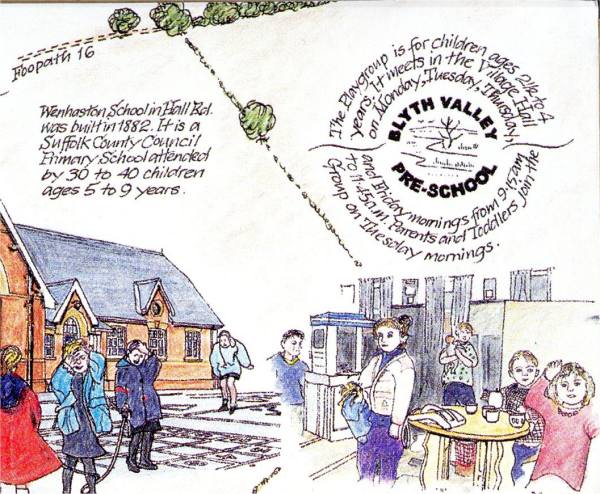 Foopath 16
Wenhaston School in Hall Rd.
was built in 1882. It is a
Suffolk County Council
Primary School attended
by 30 to 40 children
ages 5 to 9 years.
The Playgroup is for children ages 2½ to 4
years. It meets in the Village Hall
on Monday, Tuesday, Thursday,
BLYTH VALLEY
PRE-SCHOOL
and Friday mornings from 9.15am
to 11.45a.m. Parents and Toddlers join the
Group on Tuesday mornings.